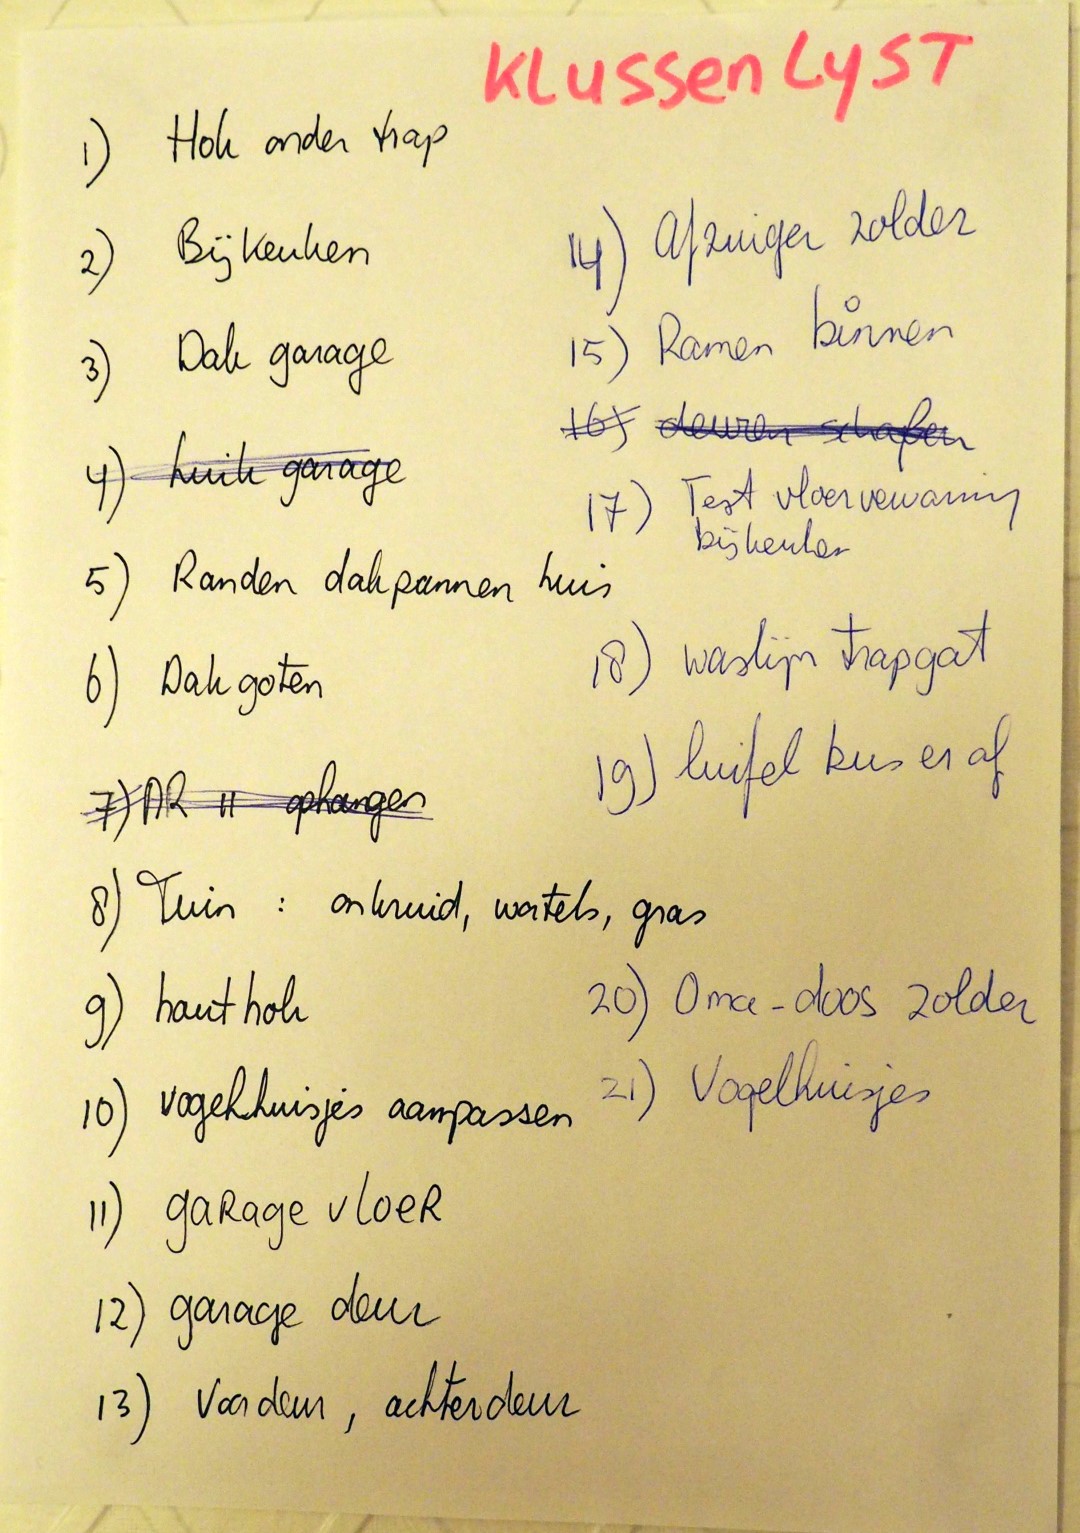 KLussen LyST
1) Hok onder trap
2) Bijkeuken
3) Dak garage
4) luik garage
5) Randen dakpannen huis
6) Dakgoten
7) AR 11 ophangen
8) Tuin : onkruid, wortels, gras
9) houthok
10) vogelhuisjes aanpassen
11) gaRage vloeR
12) garage deur
13) Voordeur, achterdeur
14) Afzuiger zolder
15) Ramen binnen
16) deuren schafen
17) Test vloerverwarming
bijkeuken
18) waslijn trapgat
19) luifel er af
20) Oma-doos zolder
21) Vogelhuisjes